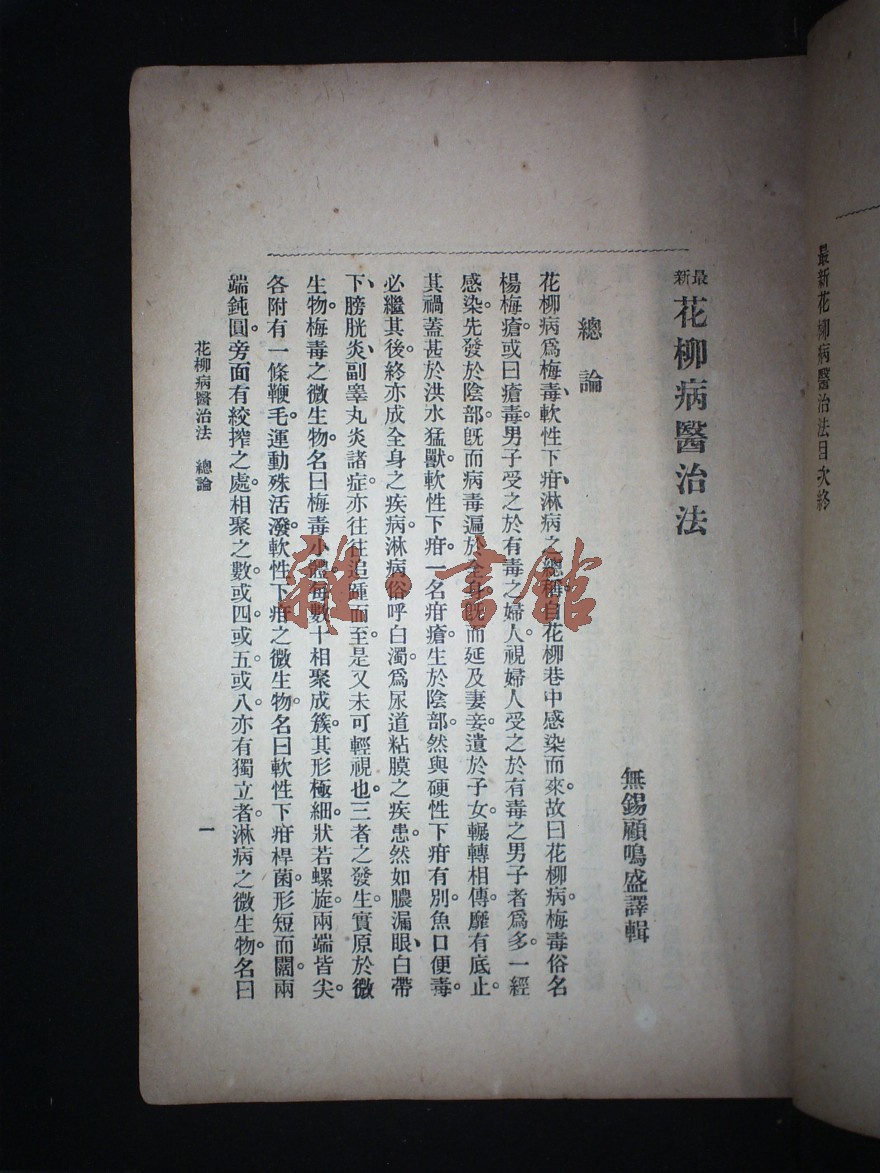 最新花柳病醫治法目次終
最新花柳病醫治法
無錫顧鳴盛譯輯
總論
花柳病爲梅毒、軟性下疳、淋病之總稱。自花柳巷中感染而來。故曰花柳病。梅毒俗名
楊梅瘡。或曰瘡毒。男子受之於有毒之婦人。視婦人受之於有毒之男子者爲多。一經
感染。先發於陰部。旣而病毒遍於全身。旣而延及妻妾。遺於子女。輾轉相傳。靡有底止。
其禍蓋甚於洪水猛獸。軟性下疳。一名疳瘡。生於陰部。然與硬性下疳有別。魚口便毒。
必繼其後。終亦成全身之疾病。淋病俗呼白濁。爲尿道粘膜之疾患。然如膿漏眼、白帶
下、膀胱炎、副睾丸炎諸症。亦往往追踵而至。是又未可輕視也。三者之發生。實原於微
生物。梅毒之微生物。名曰梅毒小體。每數十相聚成簇。其形極細。狀若螺旋。兩端皆尖。
各附有一條鞭毛。運動殊活潑。軟性下疳之微生物。名曰軟性下疳桿菌。形短而闊。兩
端鈍圓。旁面有絞搾之處。相聚之數。或四或五或八。亦有獨立者。淋病之微生物。名曰
花柳病醫治法 總論
一
雜·書館